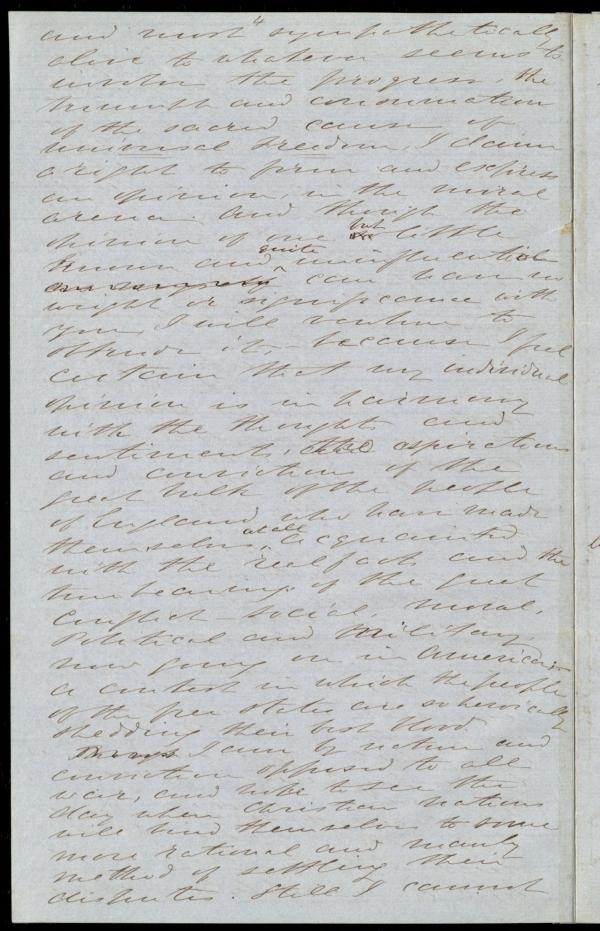 and most "sympathetically
alive to whatever seems to
involve the progress, the
triumph and consumation
of the sacred cause of
universal freedom, I claim
a right to form and express
an opinion, in the moral
arena. And though the
opinion of one but little
known and quite uninfluential
can have no
weight or significance with
you, I will venture to
obtrude it, – because I feel
certain that my individual
opinion is in harmony
with the thoughts and
sentiments, the aspirations
and convictions of the
great bulk of the people
of England who have made
themselves at all acquainted
with the real facts and the
true bearings of the great
conflict – social, moral,
political and military
now going on in America
a contest in which the people
of the free states are so heroically
shedding their best blood.
I am by nature and
conviction opposed to all
war, and hope to see the
day when Christian nations
will bind themselves to some
more rational and manly
method of settling their
disputes. Still I cannot